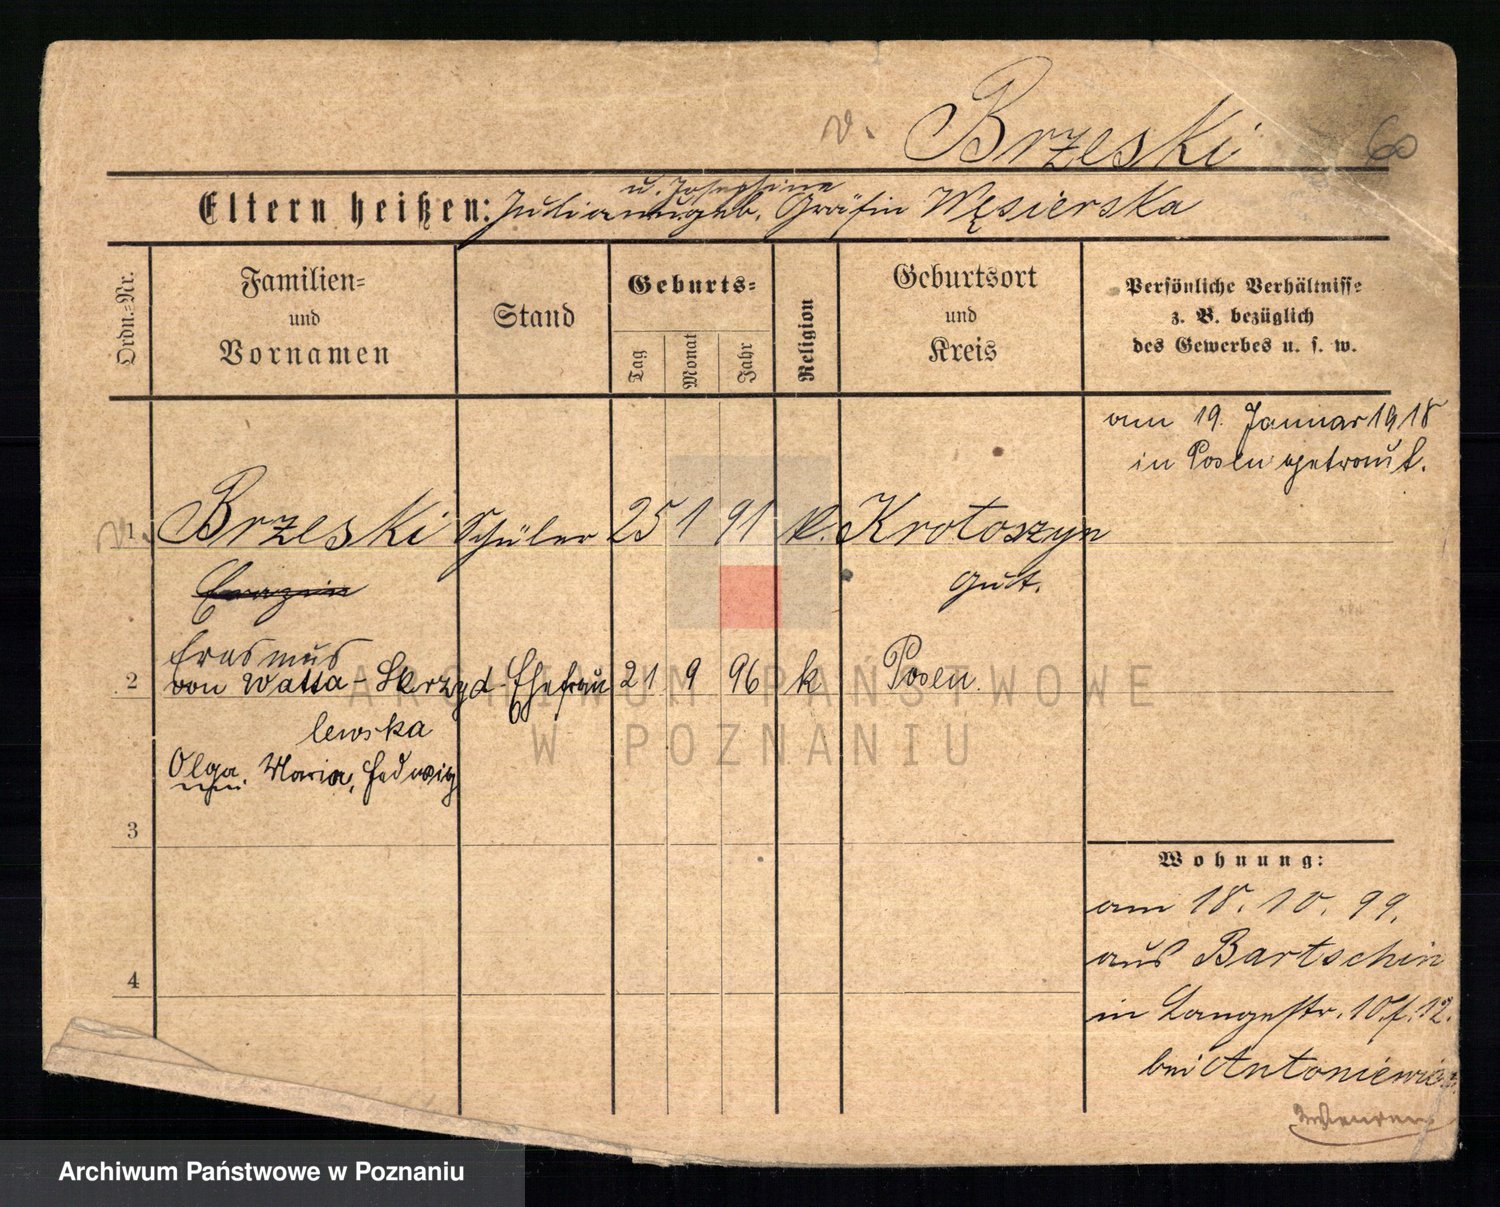 v. Brzeski 60
Eltern heißen: Julian u. Josephine geb. Gräfin Węsierska
Ordn.=Nr.
Familien=
und
Vornamen
Stand
Geburts=
Tag
Monat
Jahr
Religion
Geburtsort
und
Kreis
Persönliche Verhältnisse
z. B. bezüglich
des Gewerbes u. s. w.
am 19. Januar 1918
in Posen getraut.
v. 1 Brzeski Schüler 25 1 91 k. Krotoszyn
Erazm
Gut.
Erasmus
2 von Watta-Skrzyd- Ehefrau 21 9 96 k Posen.
lewska
Olga, Maria, Hedwig
3
4
Wohnung:
am 18. 10. 99.
aus Bartschin
in Langestr. 10 f. 12.
bei Antoniewicz
ARCHIWUM PAŃSTWOWE
W POZNANIU
Archiwum Państwowe w Poznaniu